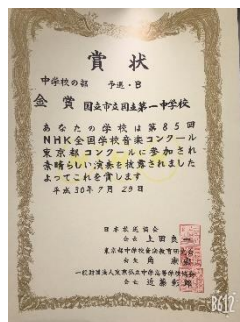 賞状
中学校の部　予選・B
金賞 国立市立国立第一中学校
あなたの学校は第85回
NHK全国学校音楽コンクール
東京都コンクールに参加され
素晴らしい演奏を披露されました
よってこれを賞します
平成30年7月29日
日本放送協会
会長 上田良一
東京都中学校音楽教育研究会
会長
会長 近藤
B612